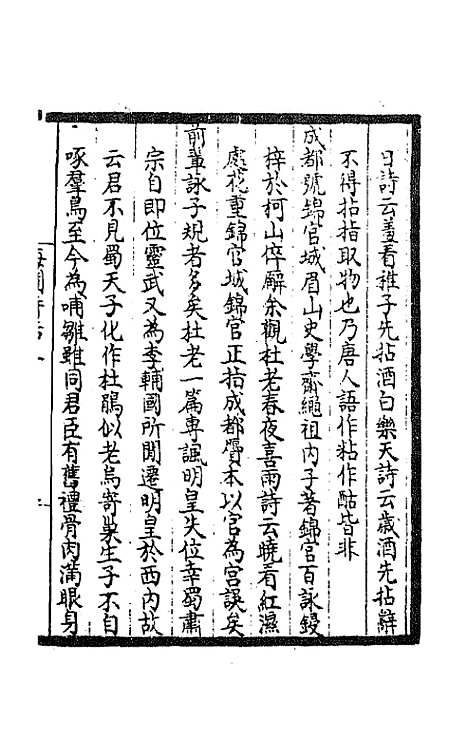 日詩云羞看稚子先拈酒白樂天詩云歲酒先拈辭
不得拈指取物也乃唐人語作粘作酤皆非
成都號錦官城眉山史學齋繩祖内子著錦官百詠鋟
梓於柯山倅廨余觀杜老春夜喜雨詩云曉看紅濕
處花重錦官城錦官正指成都贗本以官為宮誤矣
前輩詠子規者多矣杜老一篇專諷明皇失位幸蜀肅
宗自即位靈武又為李輔國所間遷明皇於西内故
云君不見蜀天子化作杜鵑似老烏寄巢生子不自
啄羣鳥至今為哺雛雖同君臣有舊禮骨肉滿眼身